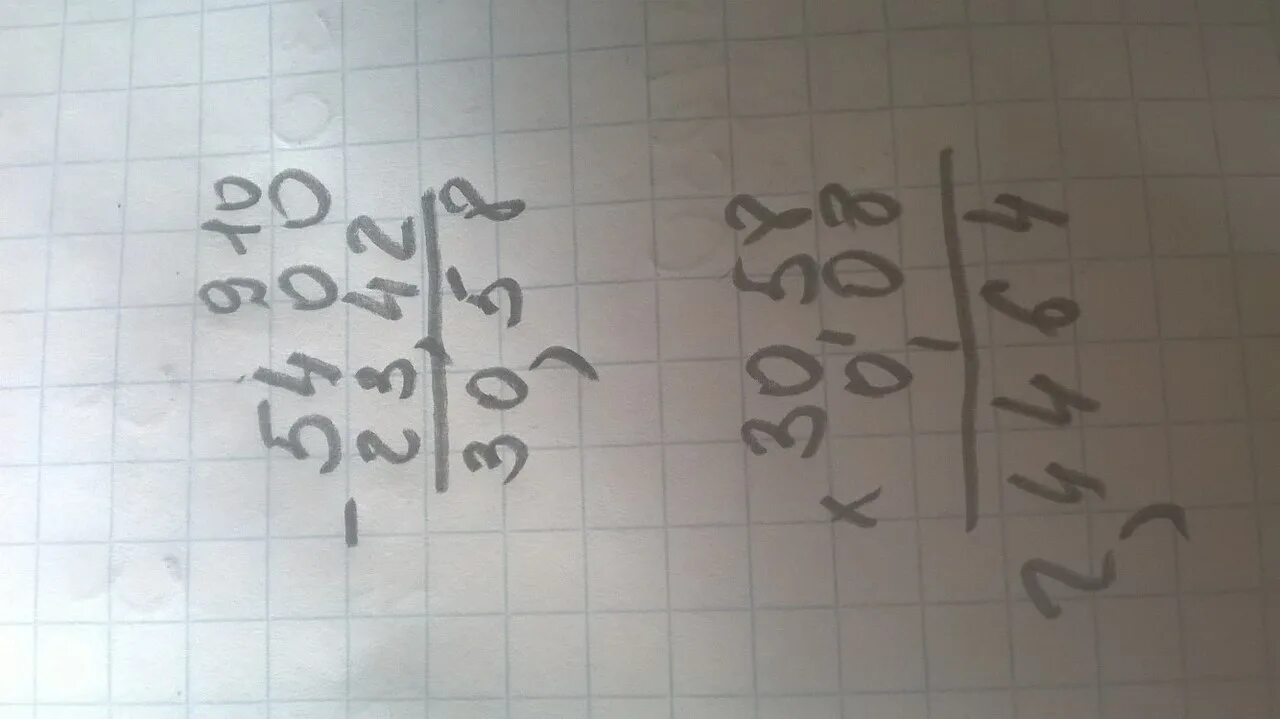 9 10
5400
- 23,42
30,58
30,58
× 0,08
2,4464